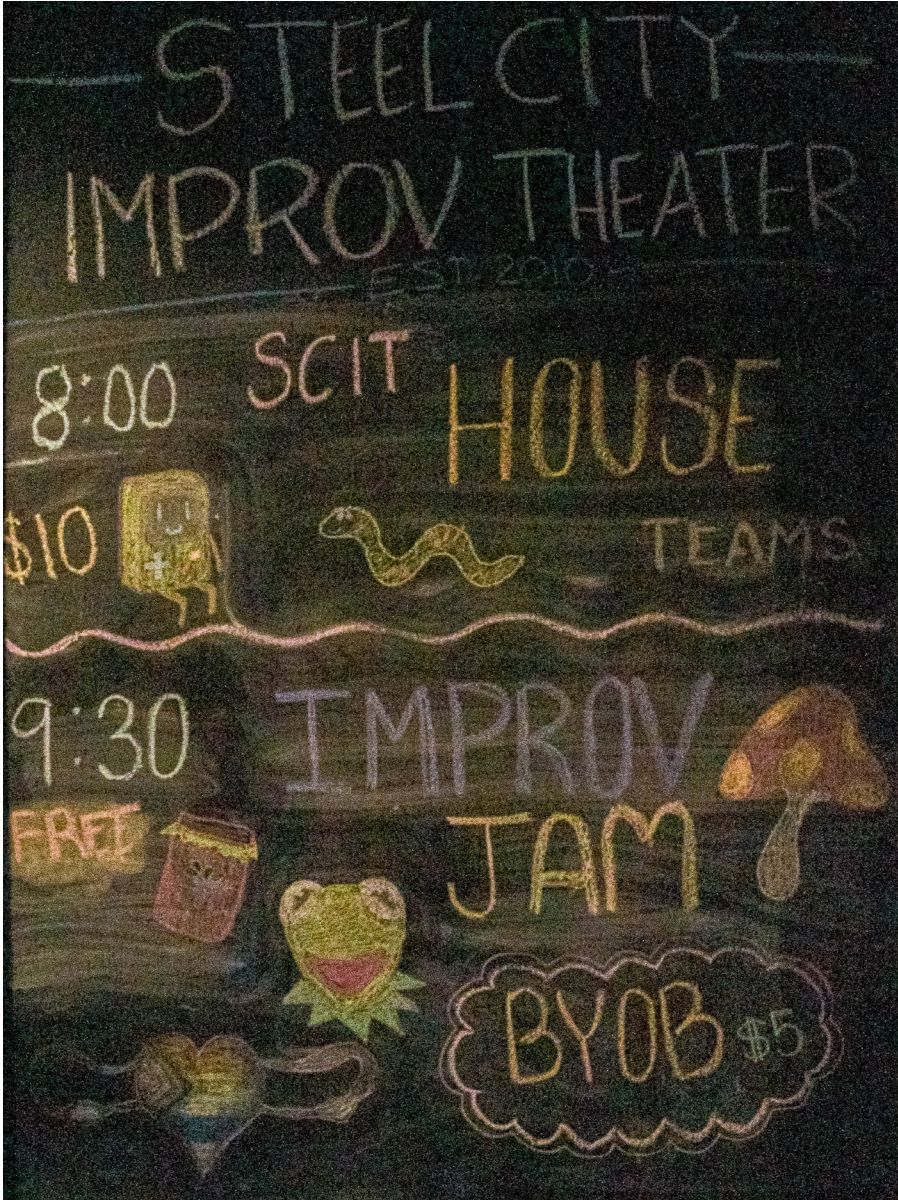 STEEL CITY
IMPROV THEATER
EST 2010
8:00 SCIT HOUSE
$10 TEAMS
9:30 IMPROV
FREE JAM
BYOB $5